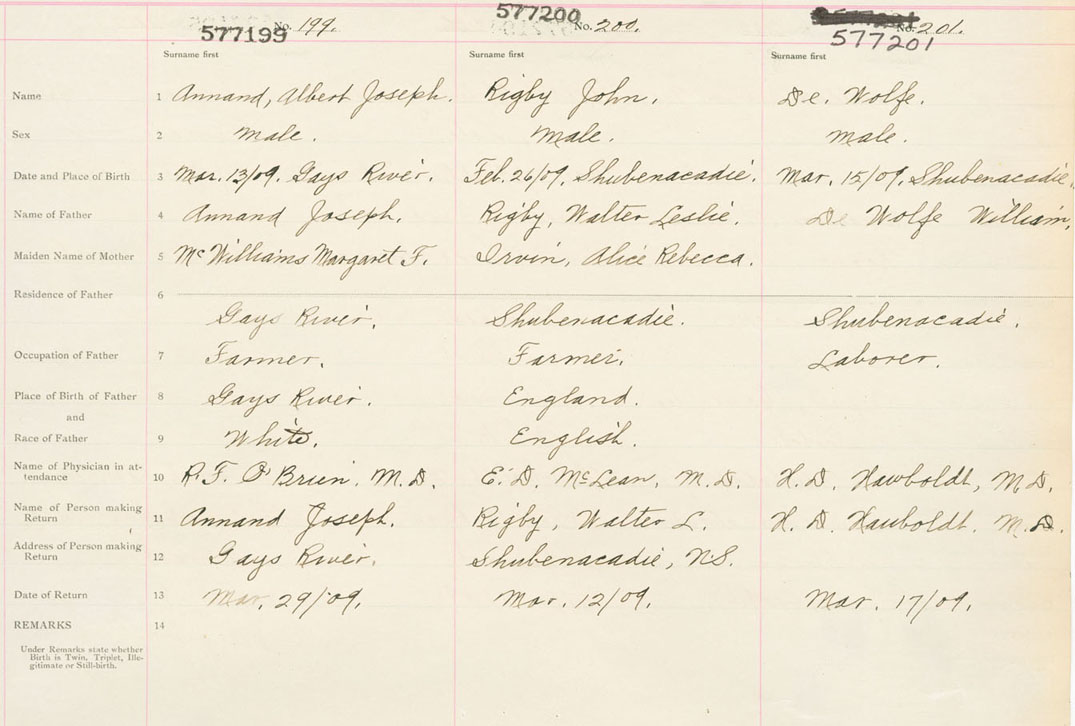 577199 No. 199. 577200 No. 200. No. 201.
577201
Surname first Surname first Surname first
Name 1 Annand, Albert Joseph. Rigby John. De. Wolfe.
Sex 2 male. Male. male.
Date and Place of Birth 3 Mar. 13/09. Gays River. Feb. 26/09. Shubenacadie. Mar. 15/09. Shubenacadie.
Name of Father 4 Annand Joseph. Rigby, Walter Leslie. De Wolfe William.
Maiden Name of Mother 5 McWilliams Margaret F. Irvin, Alice Rebecca.
Residence of Father 6
Gays River. Shubenacadie. Shubenacadie.
Occupation of Father 7 Farmer. Farmer. Laborer.
Place of Birth of Father 8 Gays River. England.
and
Race of Father 9 White. English.
Name of Physician in at-
tendance 10 R. F. O'Brien. M.D. E. D. McLean, M.D. H. D. Hawboldt, M.D.
Name of Person making
Return 11 Annand Joseph. Rigby, Walter L. H. D. Hawboldt. M.D.
Address of Person making
Return 12 Gays River. Shubenacadie, N.S.
Date of Return 13 Mar. 29/09. Mar. 12/09. Mar. 17/09.
REMARKS 14
Under Remarks state whether
Birth is Twin, Triplet, Ille-
gitimate or Still-birth.